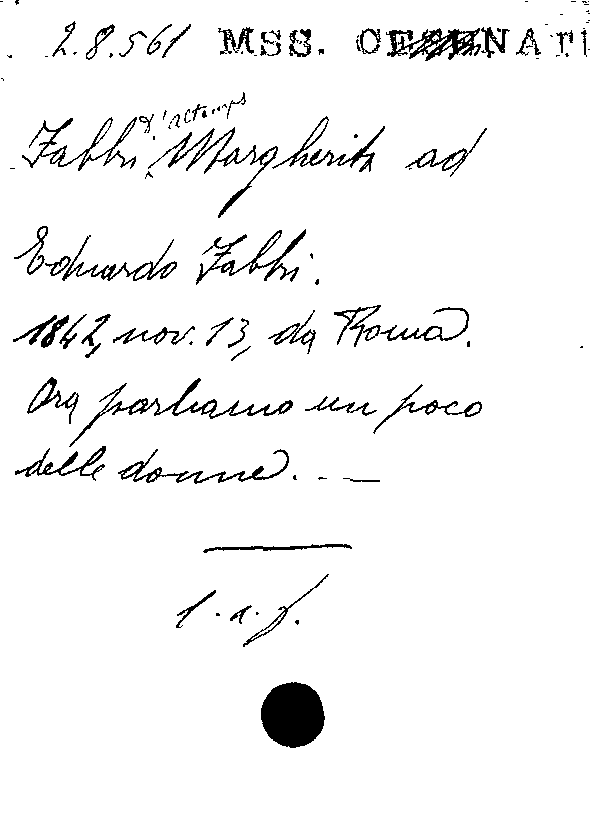 2.8.561 MSS. CESENATI
d'Altemps
Fabbri, Margherita ad
Eduardo Fabbri.
1842, nov. 13, da Roma.
Ora parliamo un poco
delle donne. . . —
l. a. f.